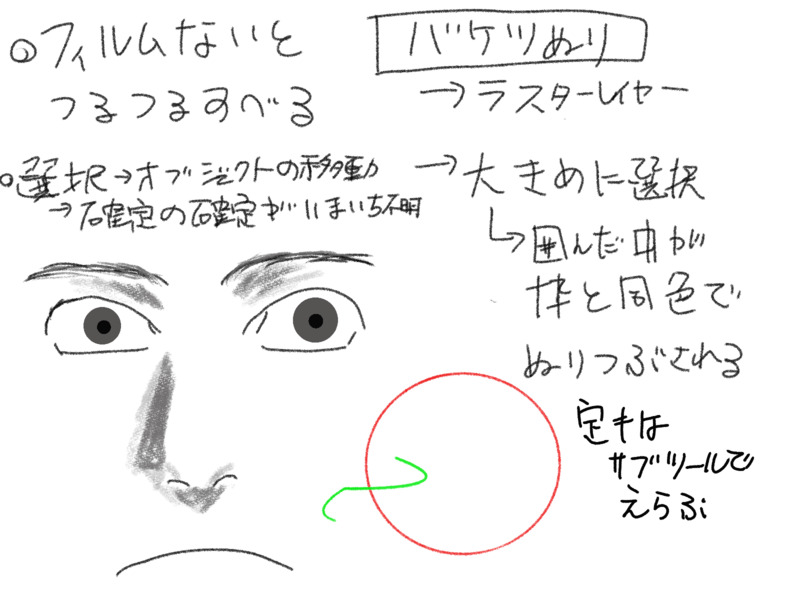 ○フィルムないと
つるつるすべる
○選択→オブジェクトの移動
→確定の確定がいまいち不明
バケツぬり
→ラスターレイヤー
→大きめに選択
↳囲んだ中が
枠と同色で
ぬりつぶされる
定キは
サブツールで
えらぶ